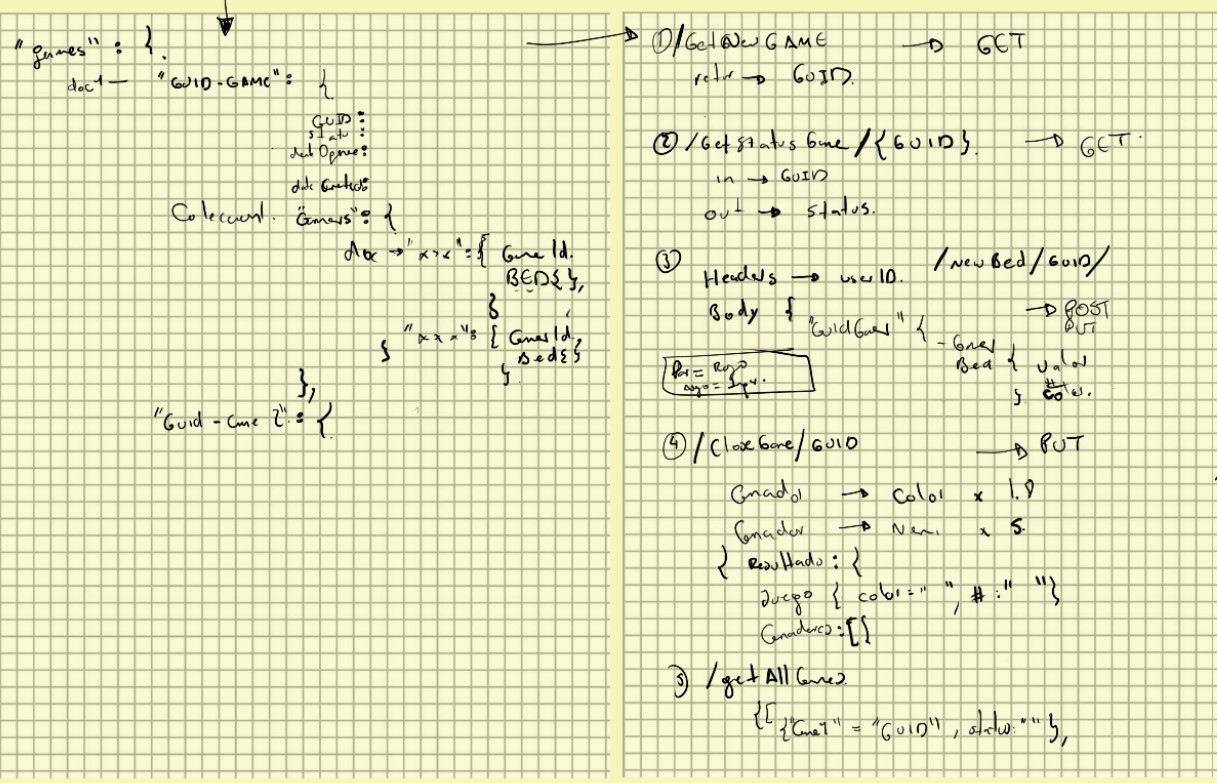 "games" : {
doc1 — "GUID-GAME" : {
GUID :
Status :
date Opened :
date Created :
Coleccion1. "Gamers" : {
doc → "xxx" : { Gamer Id.
BED { },
}
"xxx" : { Gamer Id,
Bed { }
}
}
},
"Guid - Game 2" : {
① /Get New GAME → GET
retur → GUID.
② /Get Status Game / {GUID} → GET
in → GUID
out → Status.
③ /New Bed / GUID /
Headers → user ID.
Body { → POST
PUT
"Guid Gamer" {
- Gamer
Bed { valor
} Color.
Par = Rojo
④ / Close Game / GUID → PUT
Ganador → Color x 1.8
Ganador → Num. x 5
{ Resultado : {
Juego { color = " ", # : " " }
Ganadores : [ {
5) / get All Games.
{ [ { "Game1" = "GUID", status: "" },